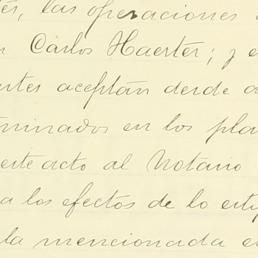 las operaciones
Cárlos Haerter; y e
aceptán desde a
minados en los pla
este acto al Notario
a los efectos de lo
la mencionada e